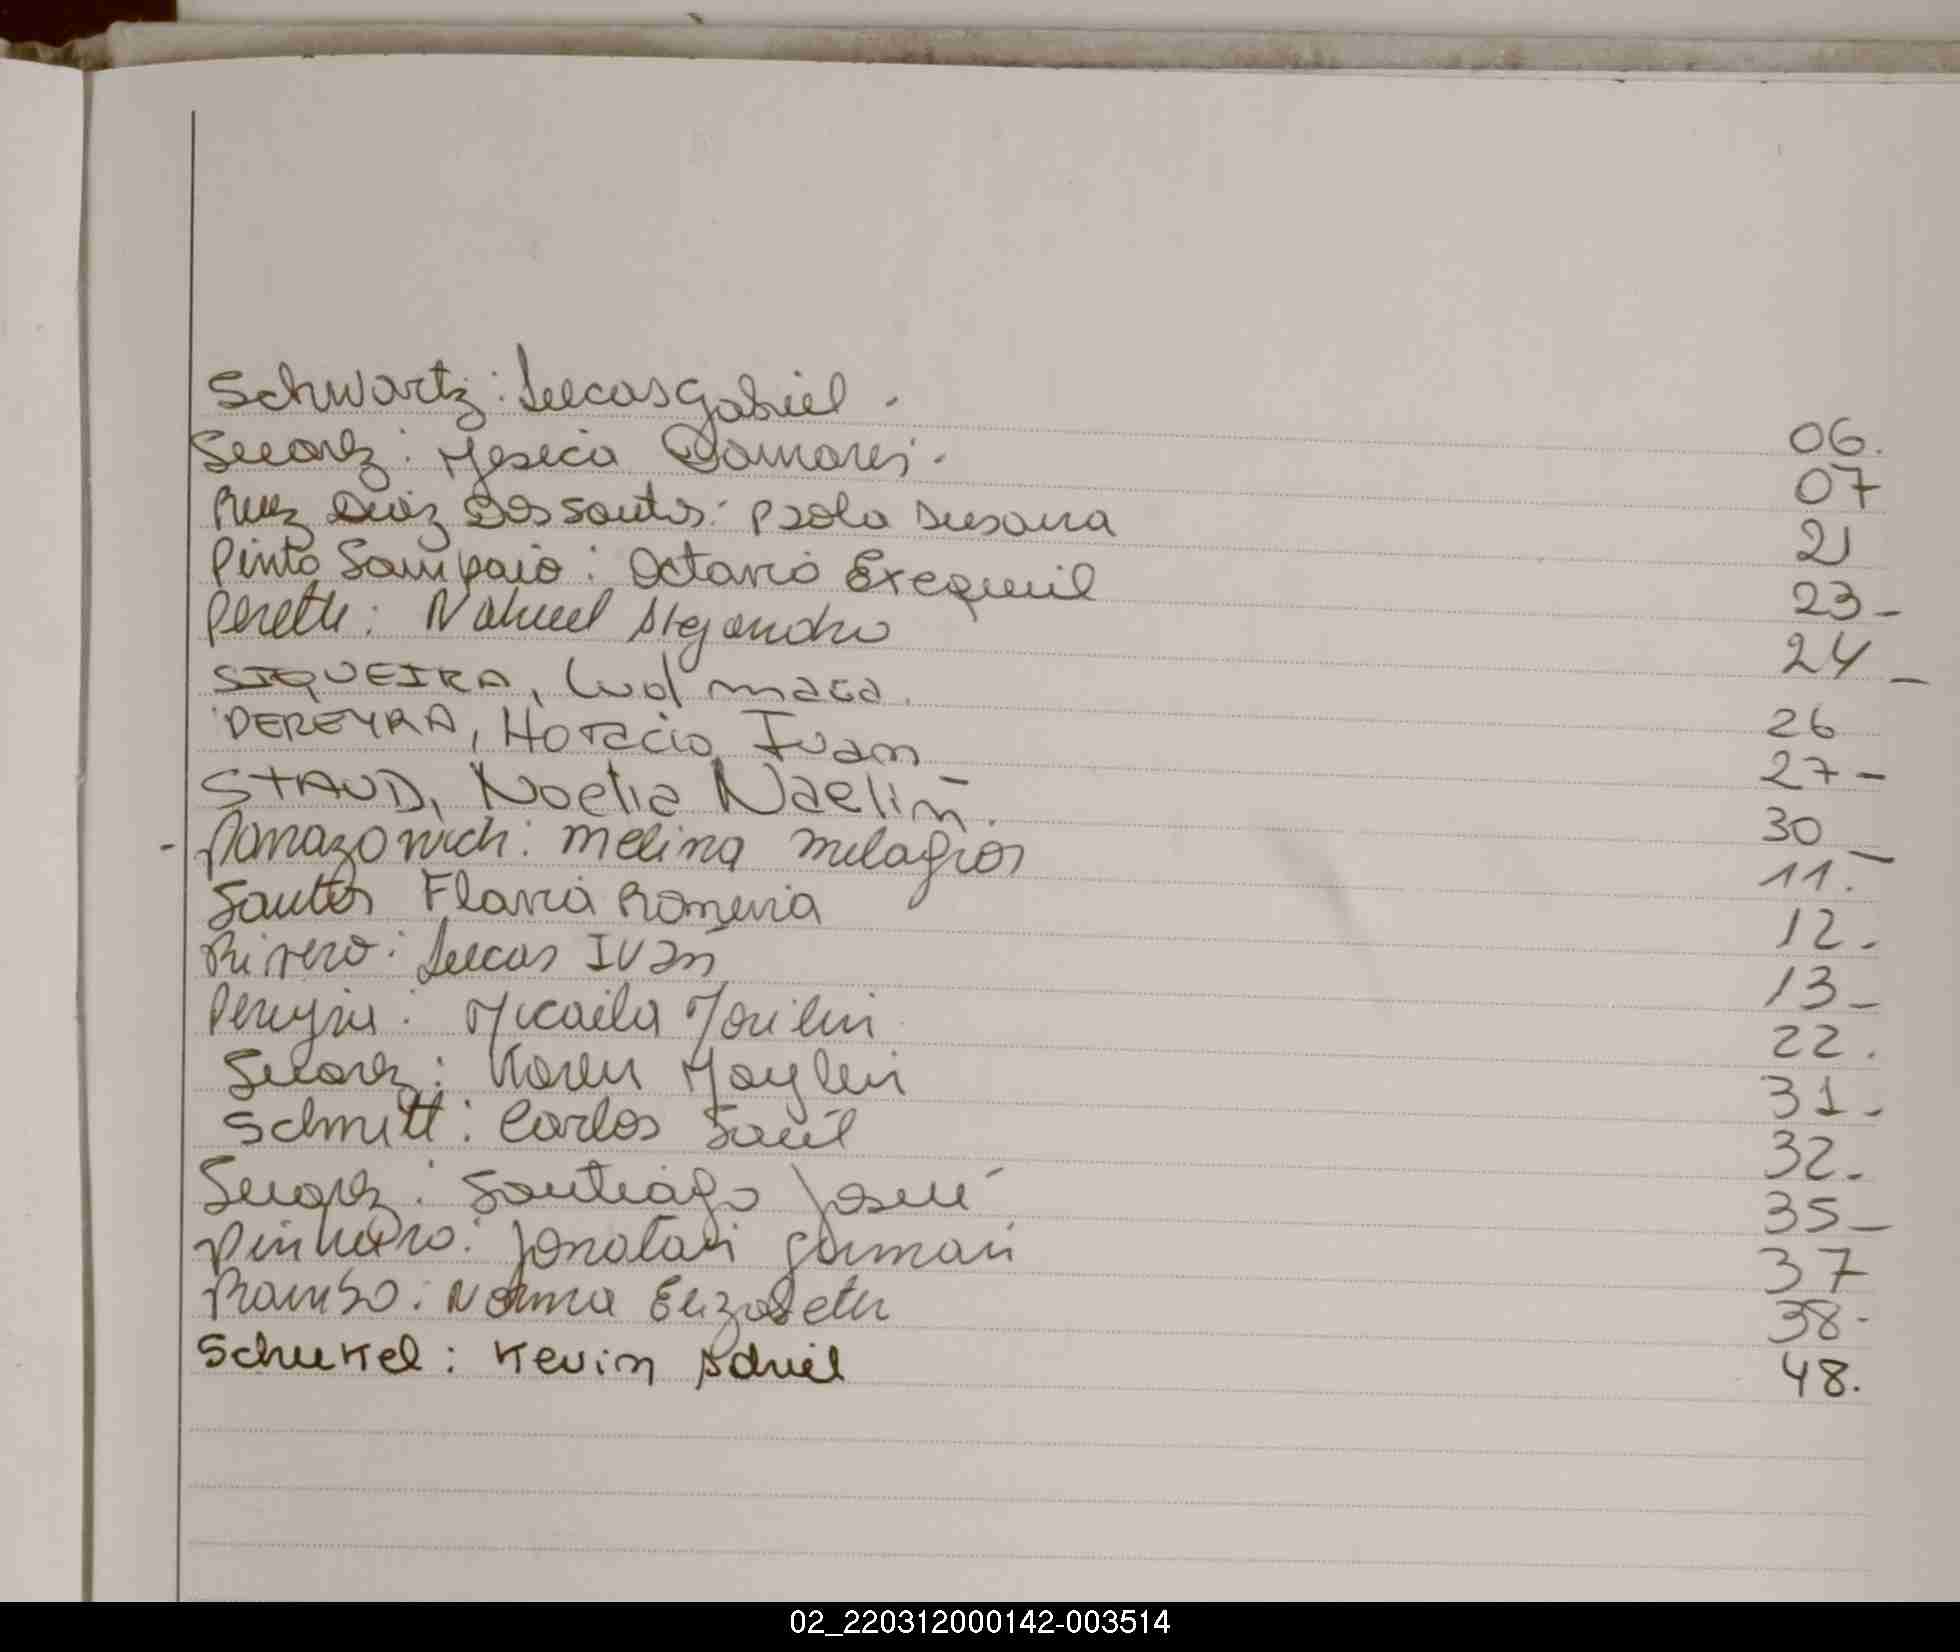 Schwartz: Lucas Gabriel. 06.
Suarez: Yesica Damaris. 07
Ruiz Diaz Dos Santos: Paola Susana 21
Pinto Sampaio: Octavio Exequiel 23-
Peretti: Nahuel Alejandro 24-
SIQUEIRA, Lud maca. 26
PEREYRA, Horacio Ivan 27-
STAUD, Noelia Naelin. 30-
- Ponazovich: Melina Milagros 11.
Santos Flavia Romina 12.
Rivero: Lucas Ivan 13-
Pereyra: Micaela Marilin 22.
Suarez: Karen Maylen 31-
Schmitt: Carlos Saúl 32-
Suarez: Santiago Josué 35-
Pinheiro: Jonatan German 37
Rambo: Norma Elizabeth 38-
Schukel: Kevin Adriel 48.
02_220312000142-003514